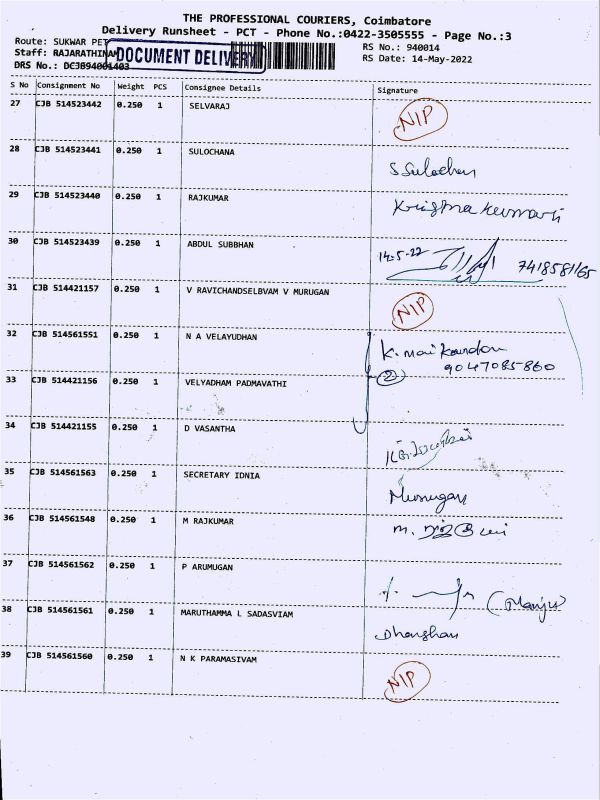 THE PROFESSIONAL COURIERS, Coimbatore
Delivery Runsheet - PCT - Phone No.:0422-3505555 - Page No.:3
Route: SUKWAR PET
RS No.: 940014
Staff: RAJARATHINAM
DOCUMENT DELIVERY
RS Date: 14-May-2022
DRS No.: DCJB94001403
S No Consignment No Weight PCS Consignee Details Signature
27 CJB 514523442 0.250 1 SELVARAJ NIP
28 CJB 514523441 0.250 1 SULOCHANA S Sulochan
29 CJB 514523440 0.250 1 RAJKUMAR Krishna kumari
30 CJB 514523439 0.250 1 ABDUL SUBBHAN 14-5-22 7418581165
31 CJB 514421157 0.250 1 V RAVICHANDSELBVAM V MURUGAN NIP
32 CJB 514561551 0.250 1 N A VELAYUDHAN K. manikandan
9047085860
33 CJB 514421156 0.250 1 VELYADHAM PADMAVATHI 2
34 CJB 514421155 0.250 1 D VASANTHA
35 CJB 514561563 0.250 1 SECRETARY IDNIA Murugan
36 CJB 514561548 0.250 1 M RAJKUMAR M.
37 CJB 514561562 0.250 1 P ARUMUGAN (Manju)
38 CJB 514561561 0.250 1 MARUTHAMMA L SADASVIAM Dharshan
39 CJB 514561560 0.250 1 N K PARAMASIVAM NIP